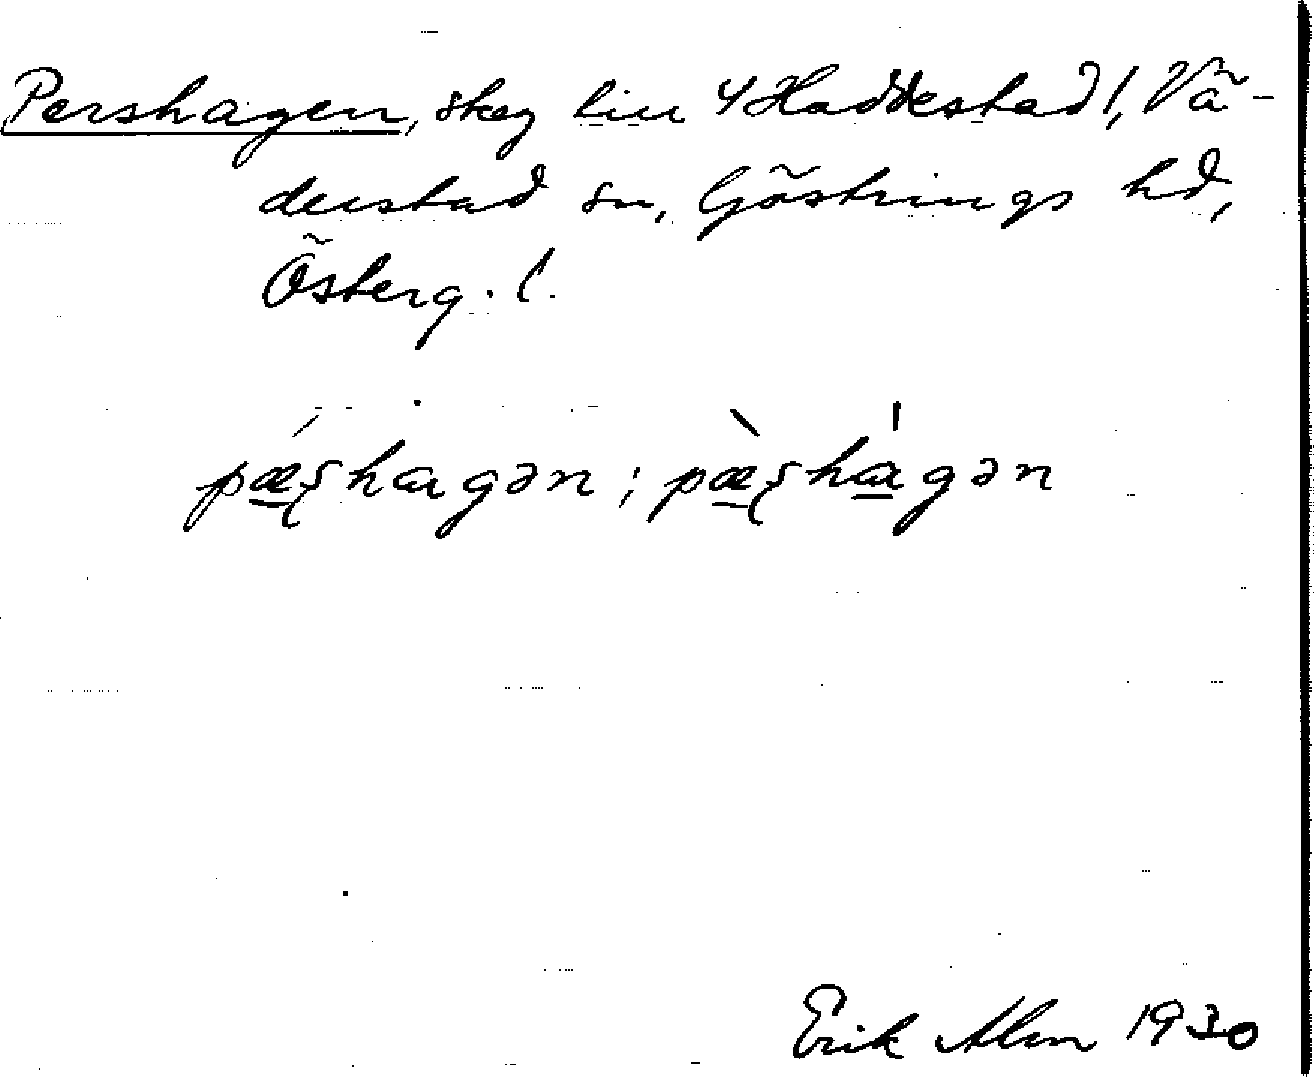 Pershagen, skog till 4 Haddestad!, Vä-
derstad sn, Göstrings hd,
Österg. l.
pǽʂhagən; pæ̀ʂhágən
Erik Alm 1930